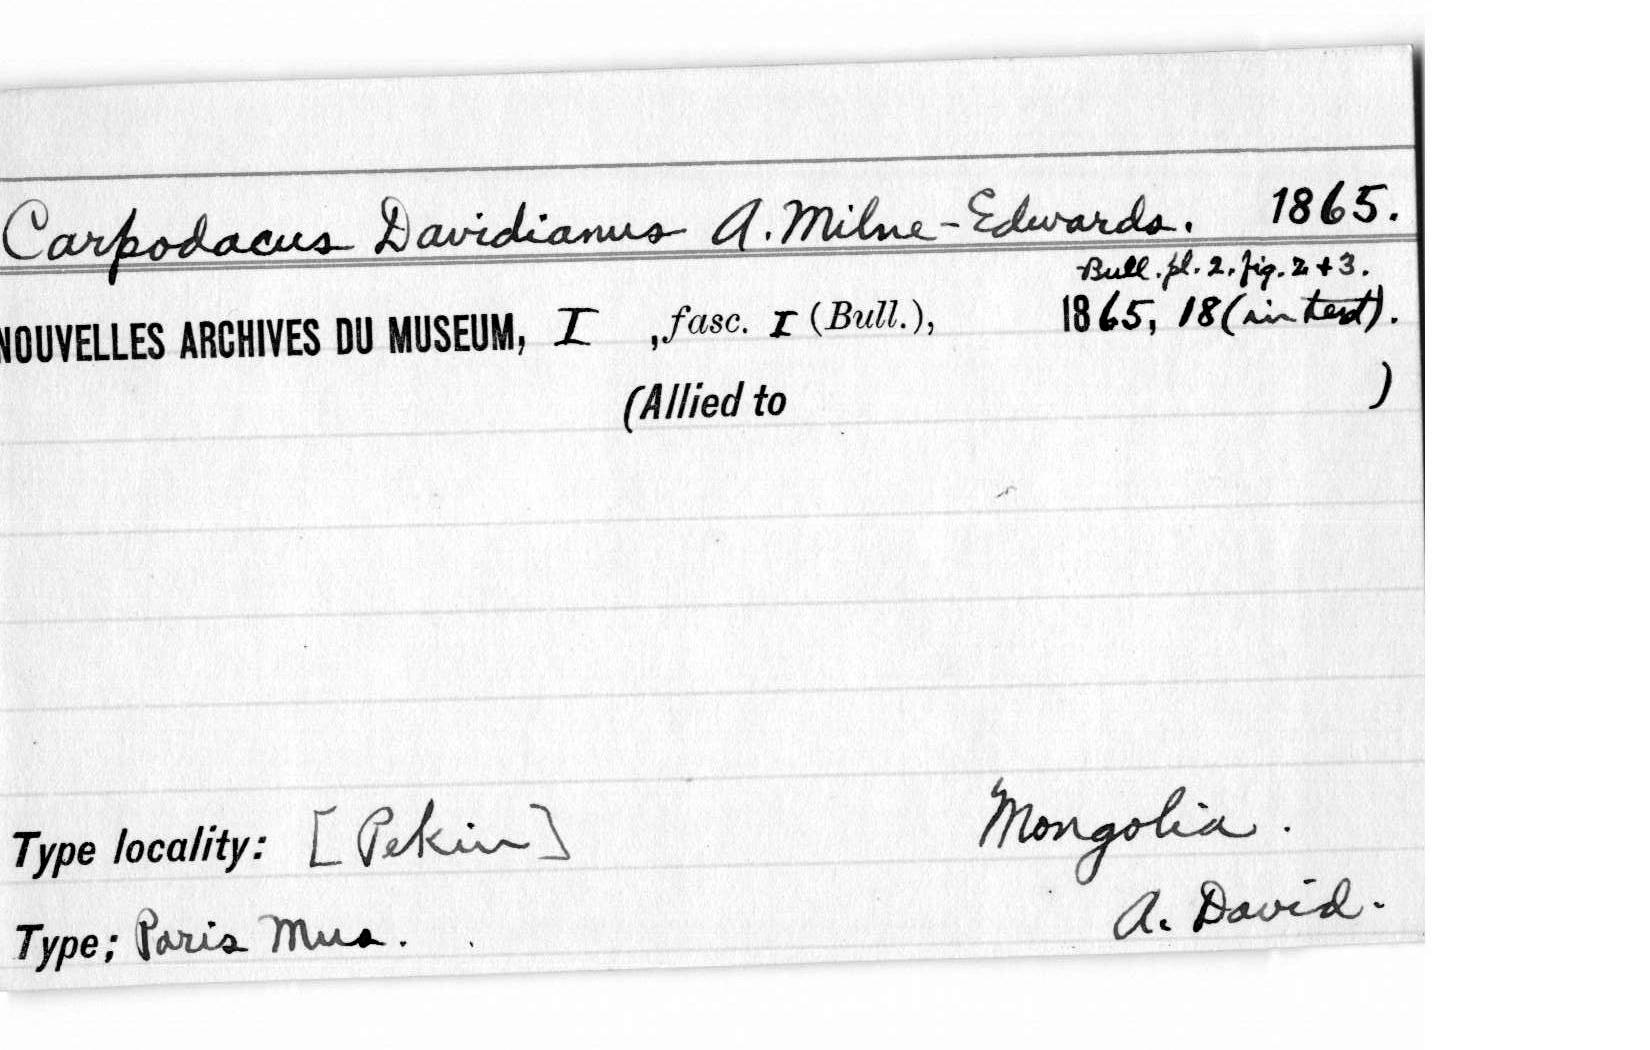 Carpodacus Davidianus A. Milne-Edwards. 1865.
Bull. pl. 2. fig. 2 + 3.
NOUVELLES ARCHIVES DU MUSEUM, I , fasc. I (Bull.), 1865, 18 (in text).
(Allied to )
Type locality: [Pekin] Mongolia.
Type; Paris Mus. A. David.